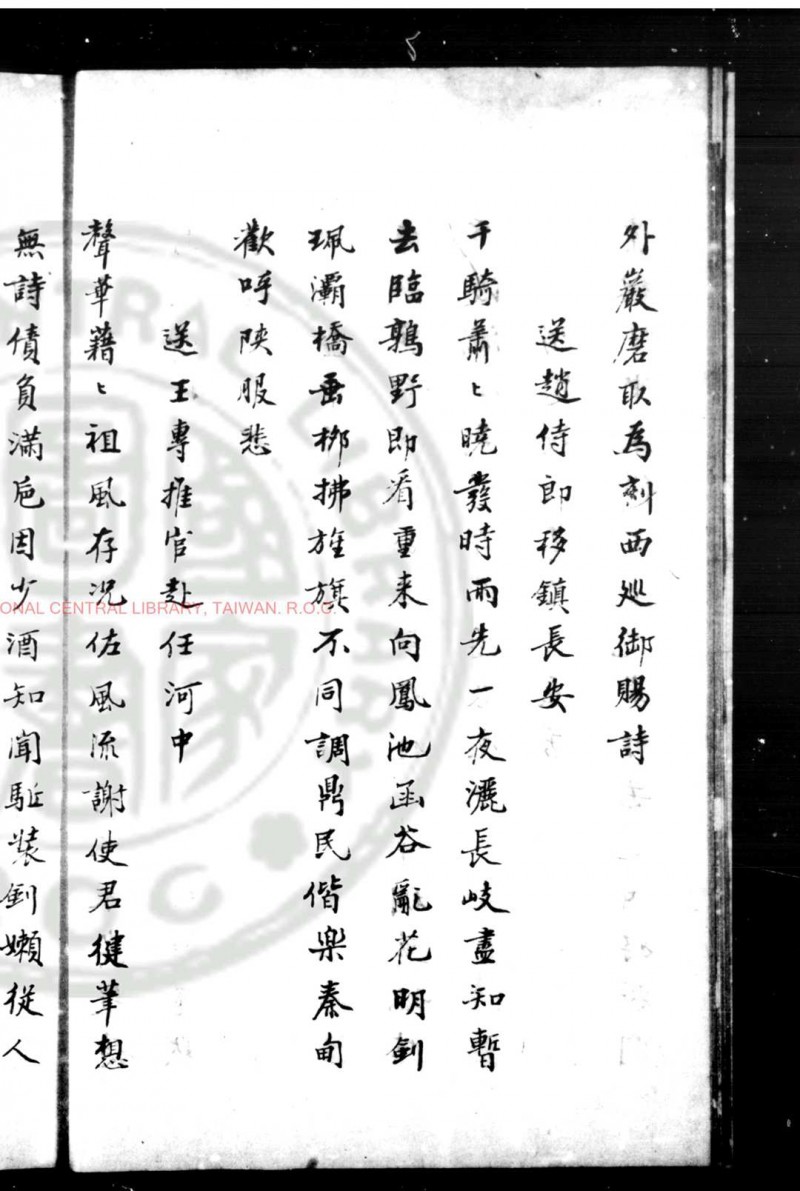 外巖磨取為刻西巡御賜詩
送趙侍郎移鎮長安
千騎蕭〻曉發時雨先一夜灑長岐盡知暫
去臨鶉野即看重来向鳳池函谷亂花明劍
珮灞橋垂栁拂旌旗不同調鼎民偕樂秦甸
歡呼陝服愁
送王專推官赴任河中
聲華藉〻祖風存况佐風流謝使君健筆想
無詩債負滿巵因少酒知聞駈裝劍嬾從人
NATIONAL CENTRAL LIBRARY, TAIWAN. R.O.C.